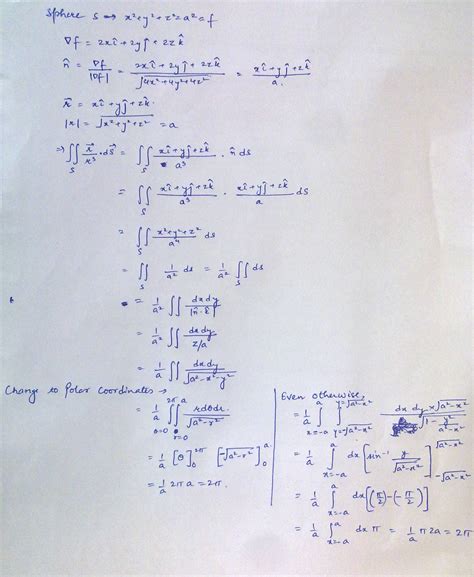 Sphere S → x²+y²+z²=a²=f
∇f = 2xî+2yĵ+2zk̂
n̂ = ∇f/|∇f| = (2xî+2yĵ+2zk̂)/√(4x²+4y²+4z²) = (xî+yĵ+zk̂)/a
r̄ = xî+yĵ+zk̂
|r| = √(x²+y²+z²) = a
⇒ ∬_S r̄/r³ · ds̄ = ∬_S (xî+yĵ+zk̂)/a³ · n̂ ds
= ∬_S (xî+yĵ+zk̂)/a³ · (xî+yĵ+zk̂)/a ds
= ∬_S (x²+y²+z²)/a⁴ ds
= ∬_S 1/a² ds = 1/a² ∬_S ds
= 1/a² ∬ dx dy/|n̂·k̂|
= 1/a² ∬ dx dy/(z/a)
= 1/a ∬ dx dy/√(a²-x²-y²)
Change to Polar coordinates →
= 1/a ∫_{θ=0}^{2π} ∫_{r=0}^{a} r dθ dr/√(a²-r²)
= 1/a [θ]_0^{2π} [-√(a²-r²)]_0^a
= 1/a 2π a = 2π.
Even otherwise,
= 1/a ∫_{x=-a}^{a} ∫_{y=-√(a²-x²)}^{y=√(a²-x²)} dx dy × √(a²-x²) √(1-y²/(a²-x²))
= 1/a ∫_{x=-a}^{a} dx [sin⁻¹ y/√(a²-x²)]_{-√(a²-x²)}^{√(a²-x²)}
= 1/a ∫_{x=-a}^{a} dx [(π/2)-(-π/2)]
= 1/a ∫_{x=-a}^{a} dx π = 1/a π 2a = 2π